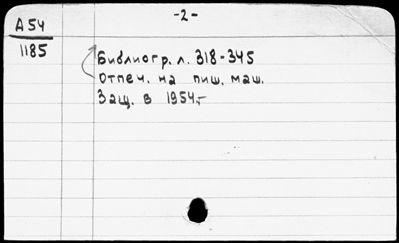 -2-
А54
1185
Библиогр. л. 318-345
Отпеч. на пиш. маш.
Защ. в 1954.-